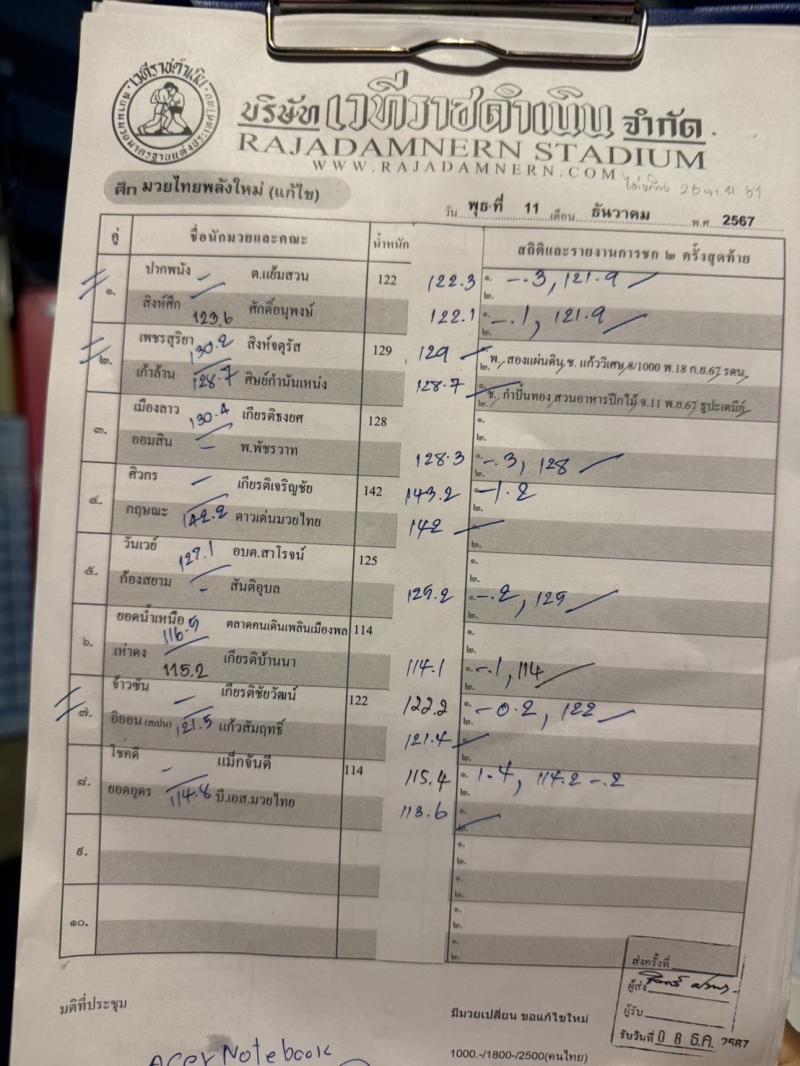 เวทีราชดำเนิน
บริษัท เวทีราชดำเนิน จำกัด
RAJADAMNERN STADIUM
WWW.RAJADAMNERN.COM
ศึก มวยไทยพลังใหม่ (แก้ไข)
วัน พุธ ที่ 11 เดือน ธันวาคม พ.ศ 2567
คู่ ชื่อนักมวยและคณะ น้ำหนัก สถิติและรายงานการชก ๒ ครั้งสุดท้าย
๑. ปากพนัง ต.แย้มสวน 122 122.3 ๑. -.3, 121.9
๒.
สิงห์ศึก 123.6 ศักดิ์อนุพงษ์ 122.1 ๑. -.1, 121.9
๒.
๒. เพชรสุริยา 130.2 สิงห์จตุรัส 129 129 พ. สองแผ่นดิน ช. แก้ววิเศษ 8/1000 พ.18 ก.ย.67 รดน.
เก้าล้าน 128.7 ศิษย์กำนันเหน่ง 128.7 ช. กำปั้นทอง สวนอาหารปีกไม้ จ.11 พ.ย.67 ธูปะเตมีย์
๓. เมืองลาว 130.4 เกียรติธงยศ 128 ๑.
๒.
ออมสิน - พ.พัชรวาท 128.3 ๑. -.3, 128
๒.
๔. ศิวกร - เกียรติเจริญชัย 142 143.2 ๑. -1.2
๒.
กฤษณะ 142.2 ดาวเด่นมวยไทย 142 ๑.
๒.
๕. วันเวย์ 127.1 อบต.สาโรจน์ 125 ๑.
๒.
ก้องสยาม - สันติอุบล 125.2 ๑. -.2, 125
๒.
๖. ยอดน้ำเหนือ 116.5 ตลาดคนเดินเพลินเมืองพล 114 ๑.
๒.
เห่าดง 115.2 เกียรติบ้านนา 114.1 ๑. -.1, 114
๒.
๗. จ้าวซัน - เกียรติชัยวัฒน์ 122 122.2 ๑. -0.2, 122
๒.
อิออน (สเปน) 121.5 แก้วสัมฤทธิ์ 121.4 ๑.
๒.
๘. โชคดี - แม็กจันดี 114 115.4 ๑. 1.4, 114.2 -.2
๒.
ยอดอุดร 114.8 บี.เอส.มวยไทย 113.6 ๑.
๒.
๙. ๑.
๒.
๑.
๒.
๑๐. ๑.
๒.
๑.
๒.
มติที่ประชุม
มีมวยเปลี่ยน ขอแก้ไขใหม่
1000.-/1800-/2500(คนไทย)
ส่งครั้งที่
ผู้ส่ง
ผู้รับ
รับวันที่ 08 ธ.ค. 2567
Acer Notebook